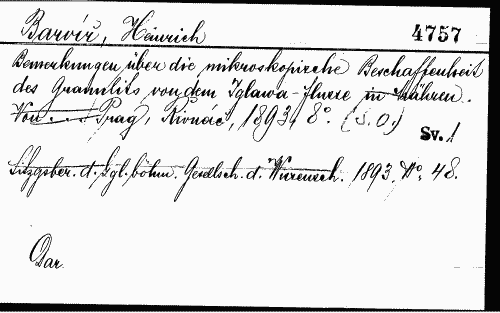 Barvíř, Heinrich 4757
Bemerkungen über die mikroskopische Beschaffenheit
des Granulits von dem Iglawa-flusse in Mähren.
Von ... Prag, Rivnáč, 1893. 8°. (S.O.)
Sv. 1
Sitzgsber. d. kgl. böhm. Gesellsch. d. Wissensch. 1893. No. 48.
Dar.